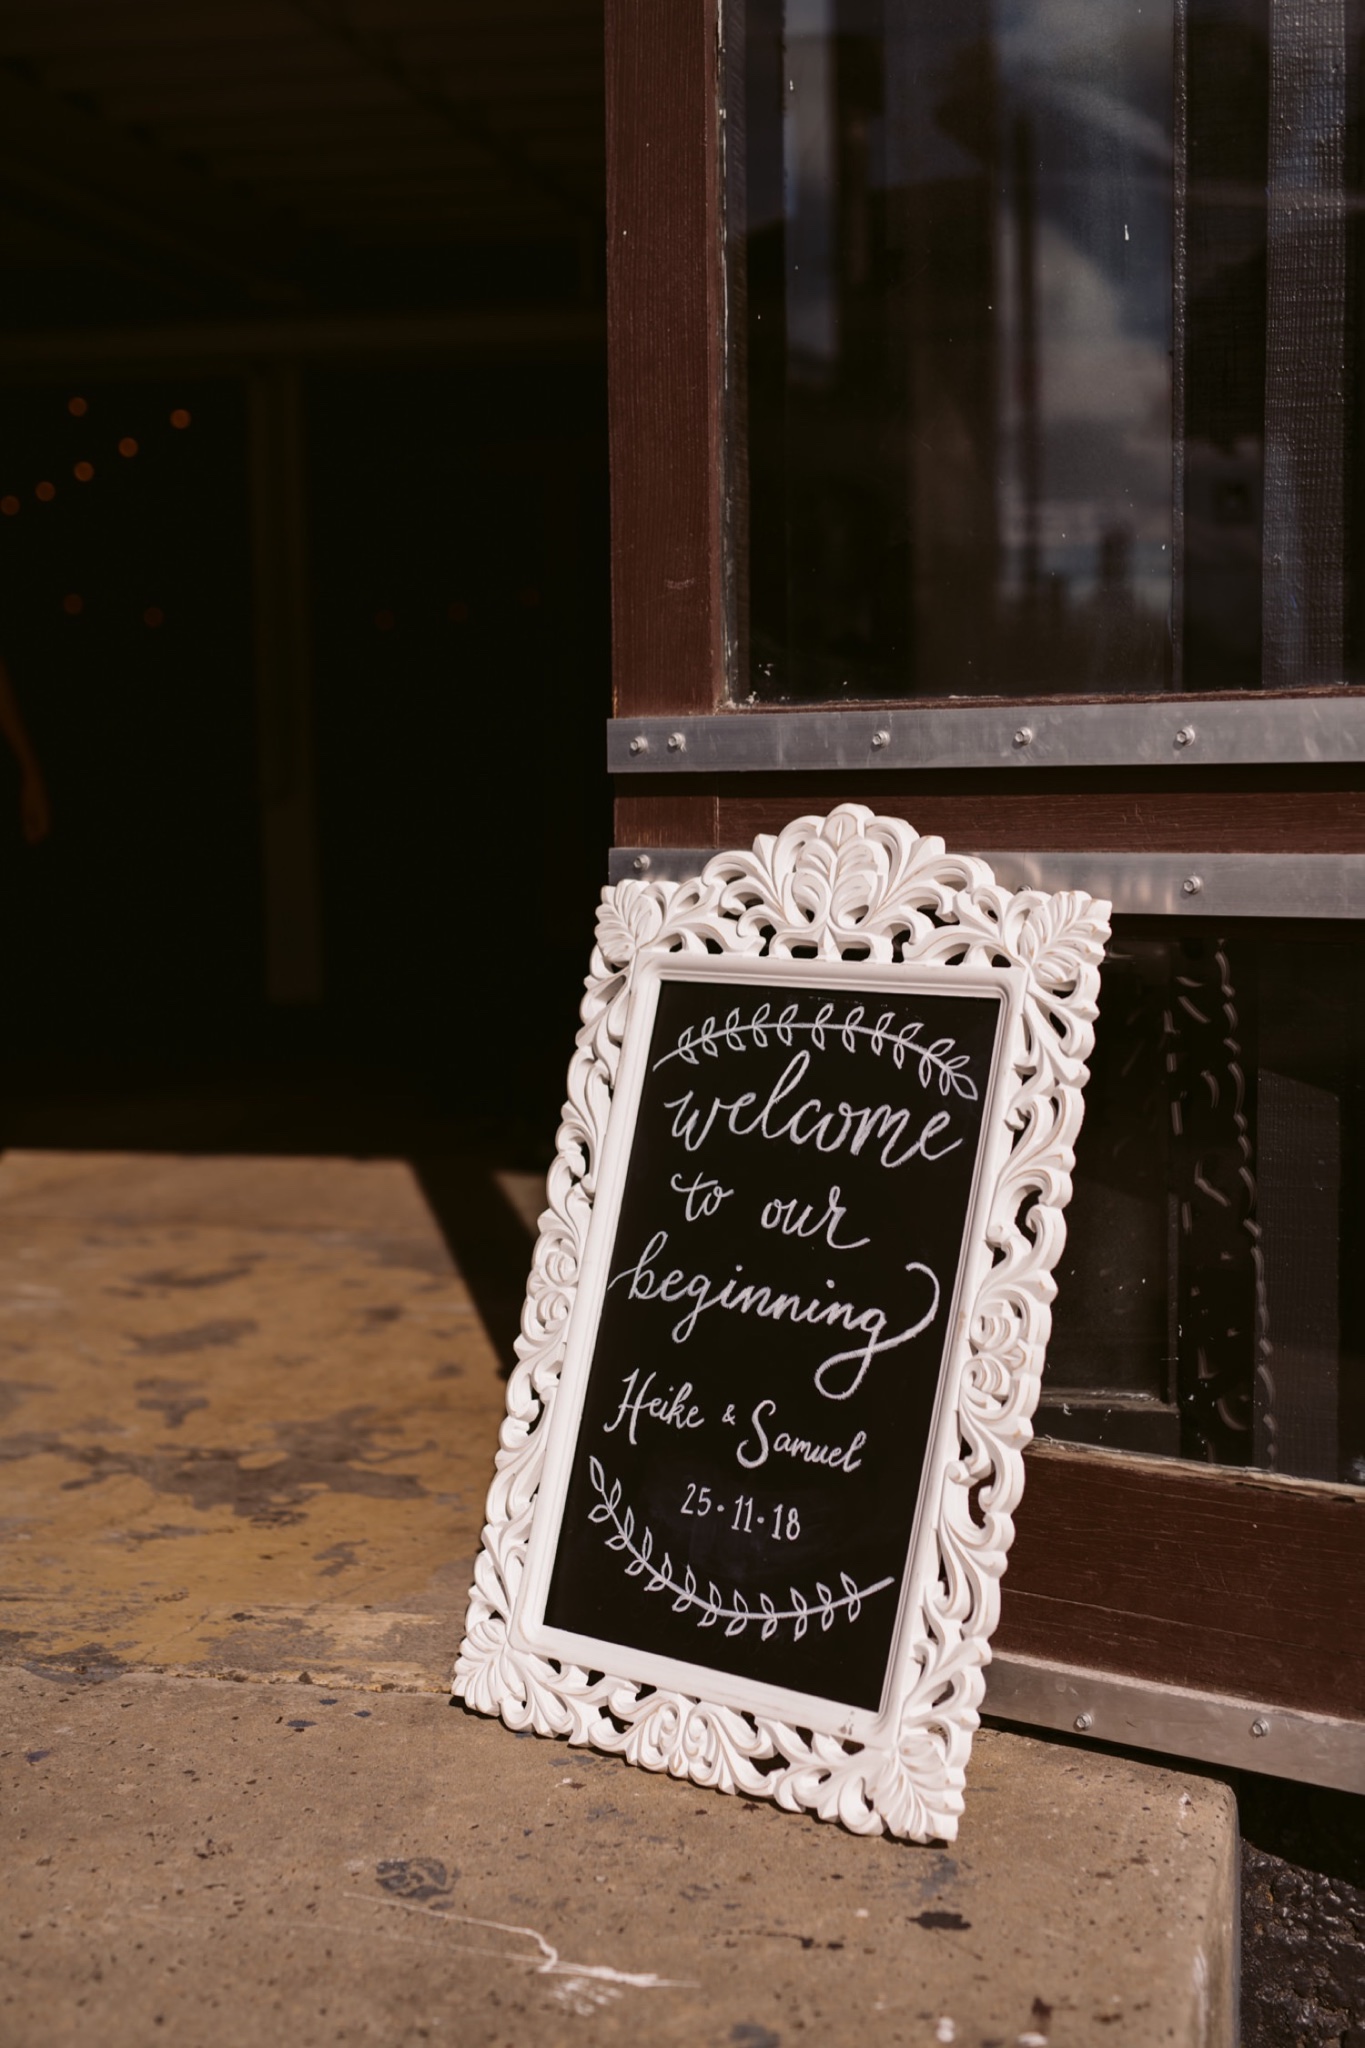 welcome
to our
beginning
Heike & Samuel
25·11·18